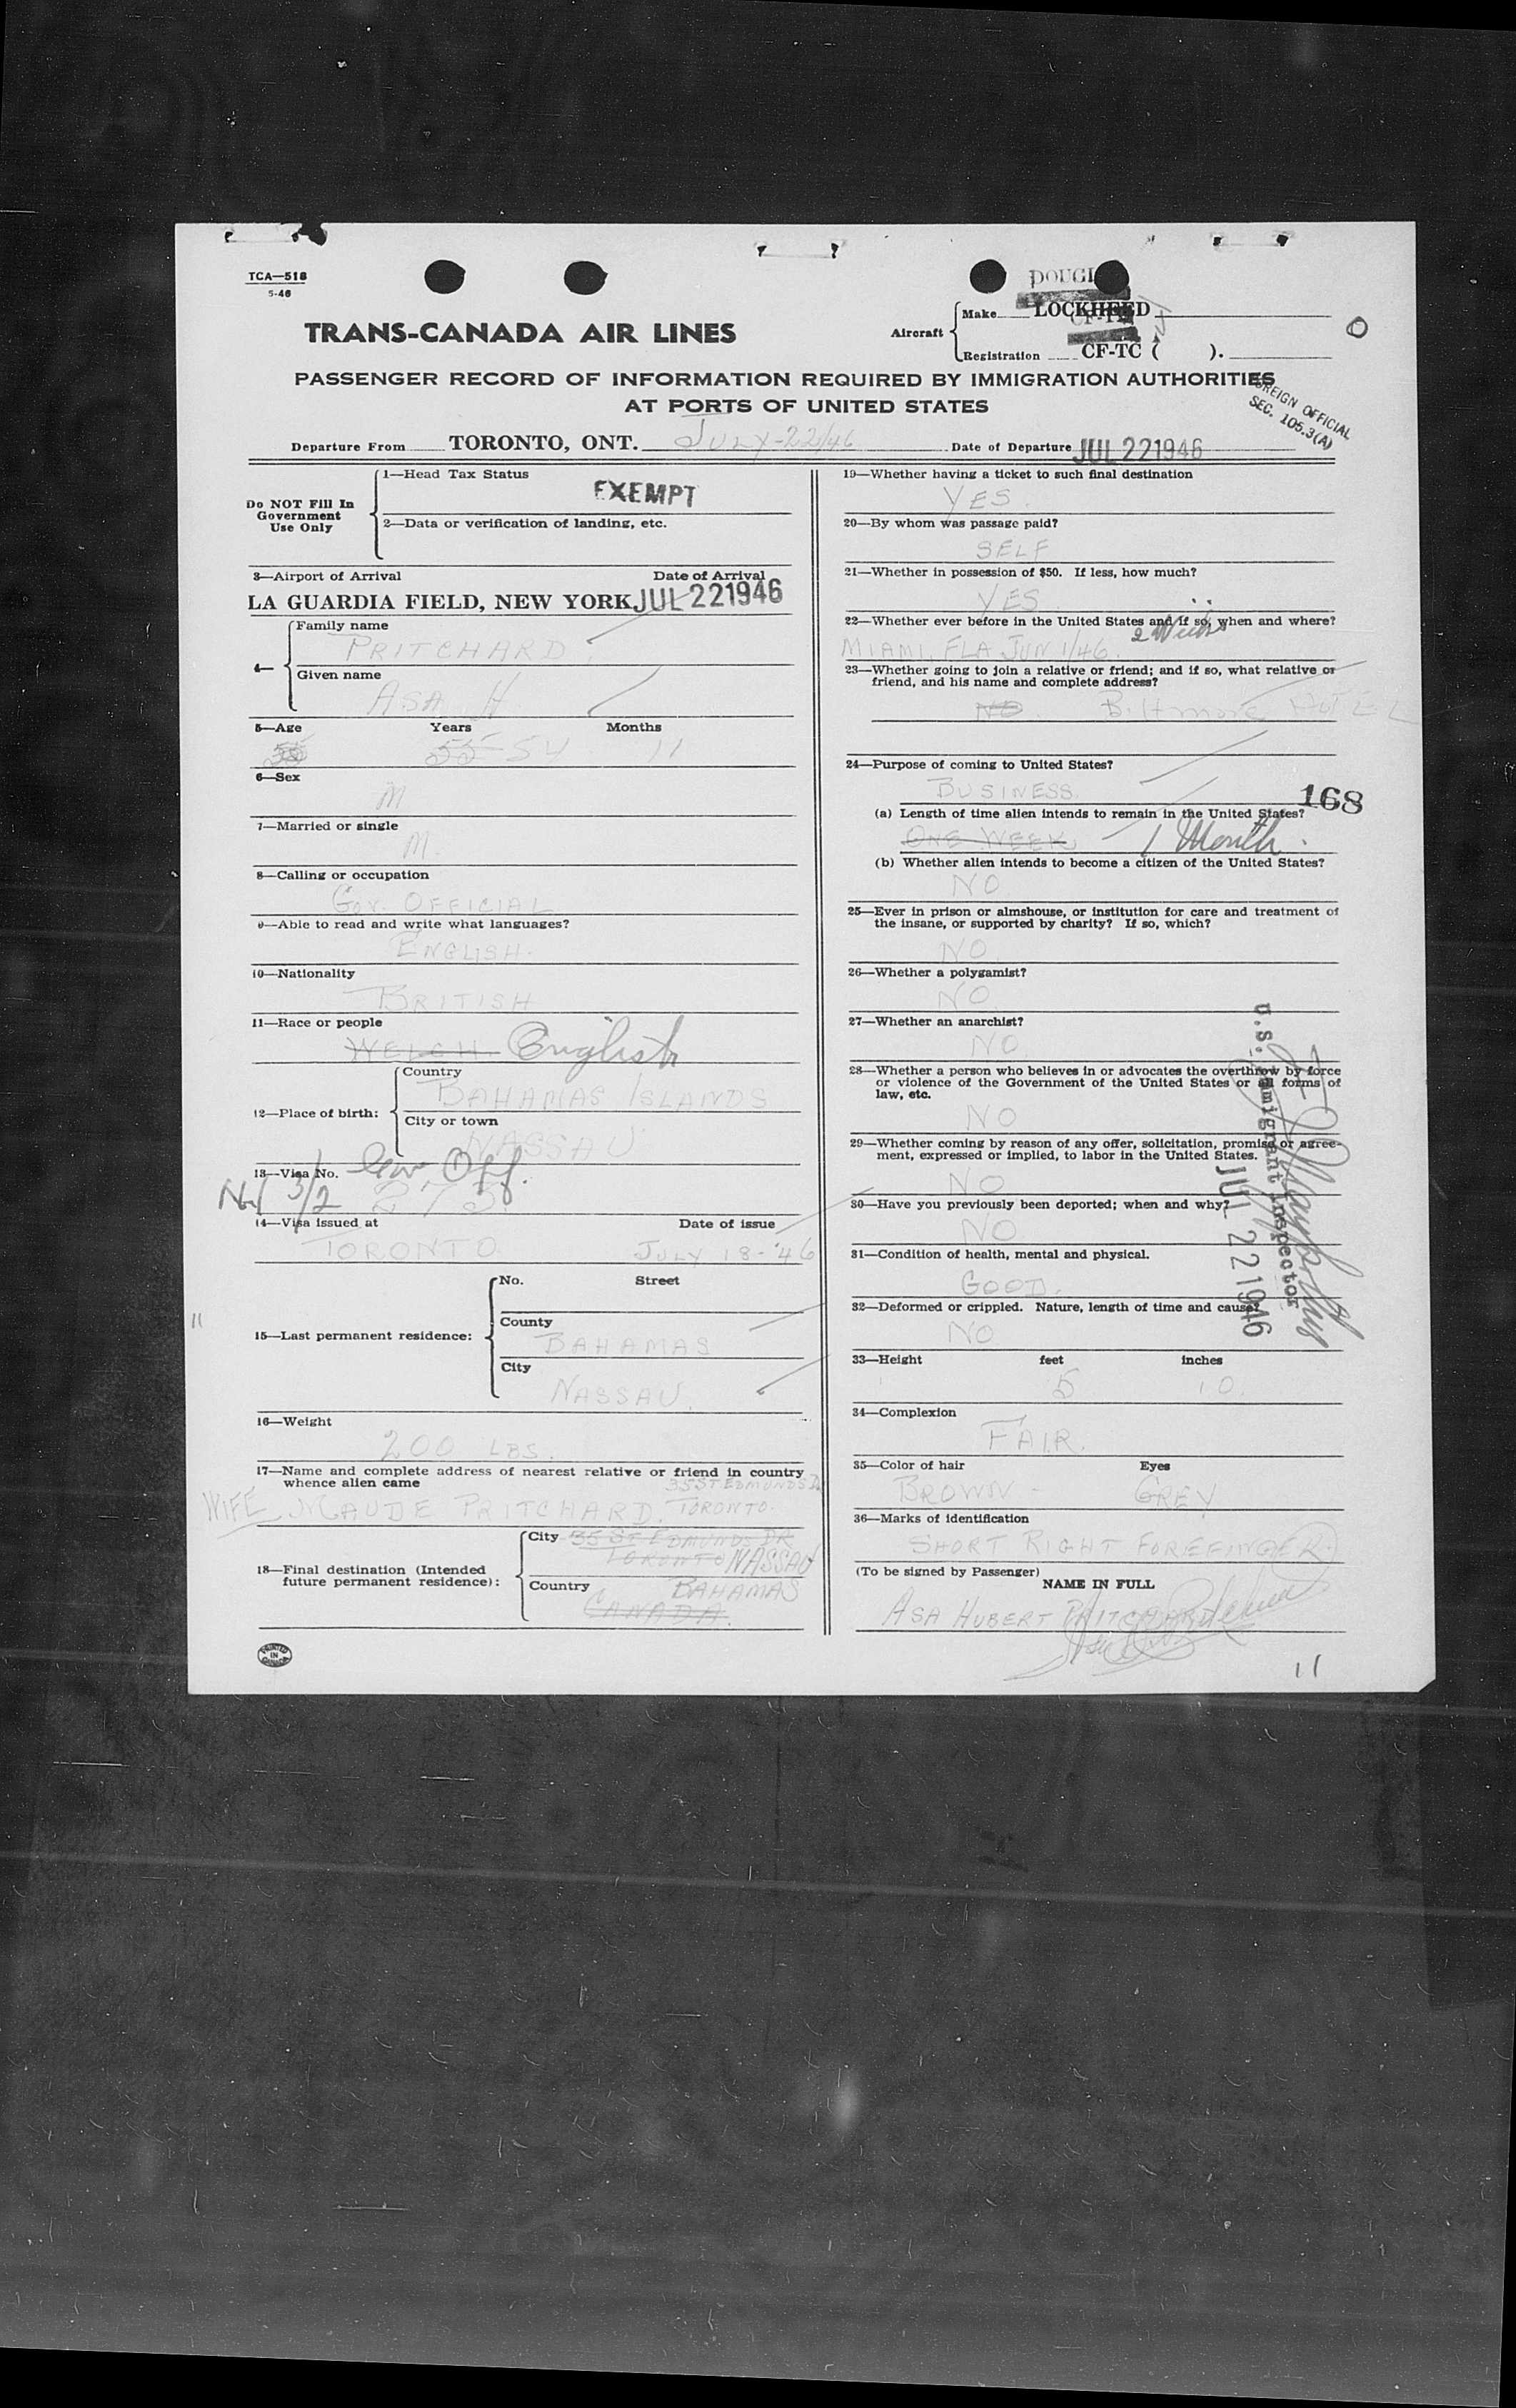 TCA—518
5-46
DOUGL
Aircraft
Make LOCKHEED
Registration CF-TC ( ).
TRANS-CANADA AIR LINES
PASSENGER RECORD OF INFORMATION REQUIRED BY IMMIGRATION AUTHORITIES
AT PORTS OF UNITED STATES
FOREIGN OFFICIAL
SEC. 105.3(A)
Departure From TORONTO, ONT. JULY-22/46 Date of Departure JUL 22 1946
Do NOT Fill In
Government
Use Only
1—Head Tax Status
EXEMPT
2—Data or verification of landing, etc.
3—Airport of Arrival Date of Arrival
LA GUARDIA FIELD, NEW YORK JUL 22 1946
4— Family name
PRITCHARD
Given name
ASA H.
5—Age Years Months
55 55 54 11
6—Sex
M
7—Married or single
M.
8—Calling or occupation
GOV. OFFICIAL
9—Able to read and write what languages?
ENGLISH.
10—Nationality
BRITISH
11—Race or people
WELCH English
12—Place of birth:
Country
BAHAMAS ISLANDS
City or town
NASSAU
13—Visa No. Gov Off.
3/2 275
14—Visa issued at Date of issue
TORONTO JULY 18-'46
15—Last permanent residence:
No. Street
County
BAHAMAS
City
NASSAU.
16—Weight
200 LBS.
17—Name and complete address of nearest relative or friend in country
whence alien came 35 ST EDMUNDS DR
WIFE MAUDE PRITCHARD. TORONTO.
18—Final destination (Intended
future permanent residence):
City 35 ST EDMUNDS DR
TORONTO NASSAU
Country BAHAMAS
CANADA.
PRINTED
IN
CANADA
19—Whether having a ticket to such final destination
YES.
20—By whom was passage paid?
SELF
21—Whether in possession of $50. If less, how much?
YES
22—Whether ever before in the United States and if so, when and where?
MIAMI, FLA JUN 1/46. 2 Weeks
23—Whether going to join a relative or friend; and if so, what relative or
friend, and his name and complete address?
NO Biltmore HOTEL
24—Purpose of coming to United States?
BUSINESS.
168
(a) Length of time alien intends to remain in the United States?
ONE WEEK 1 Month.
(b) Whether alien intends to become a citizen of the United States?
NO
25—Ever in prison or almshouse, or institution for care and treatment of
the insane, or supported by charity? If so, which?
NO.
26—Whether a polygamist?
NO.
27—Whether an anarchist?
NO.
28—Whether a person who believes in or advocates the overthrow by force
or violence of the Government of the United States or all forms of
law, etc.
NO
29—Whether coming by reason of any offer, solicitation, promise or agree-
ment, expressed or implied, to labor in the United States.
NO
30—Have you previously been deported; when and why?
NO
31—Condition of health, mental and physical.
GOOD.
32—Deformed or crippled. Nature, length of time and cause?
NO
U.S. Immigrant Inspector
JUL 22 1946
33—Height feet inches
5 10.
34—Complexion
FAIR.
35—Color of hair Eyes
BROWN - GREY
36—Marks of identification
SHORT RIGHT FOREFINGER
(To be signed by Passenger)
NAME IN FULL
ASA HUBERT PRITCHARD
11